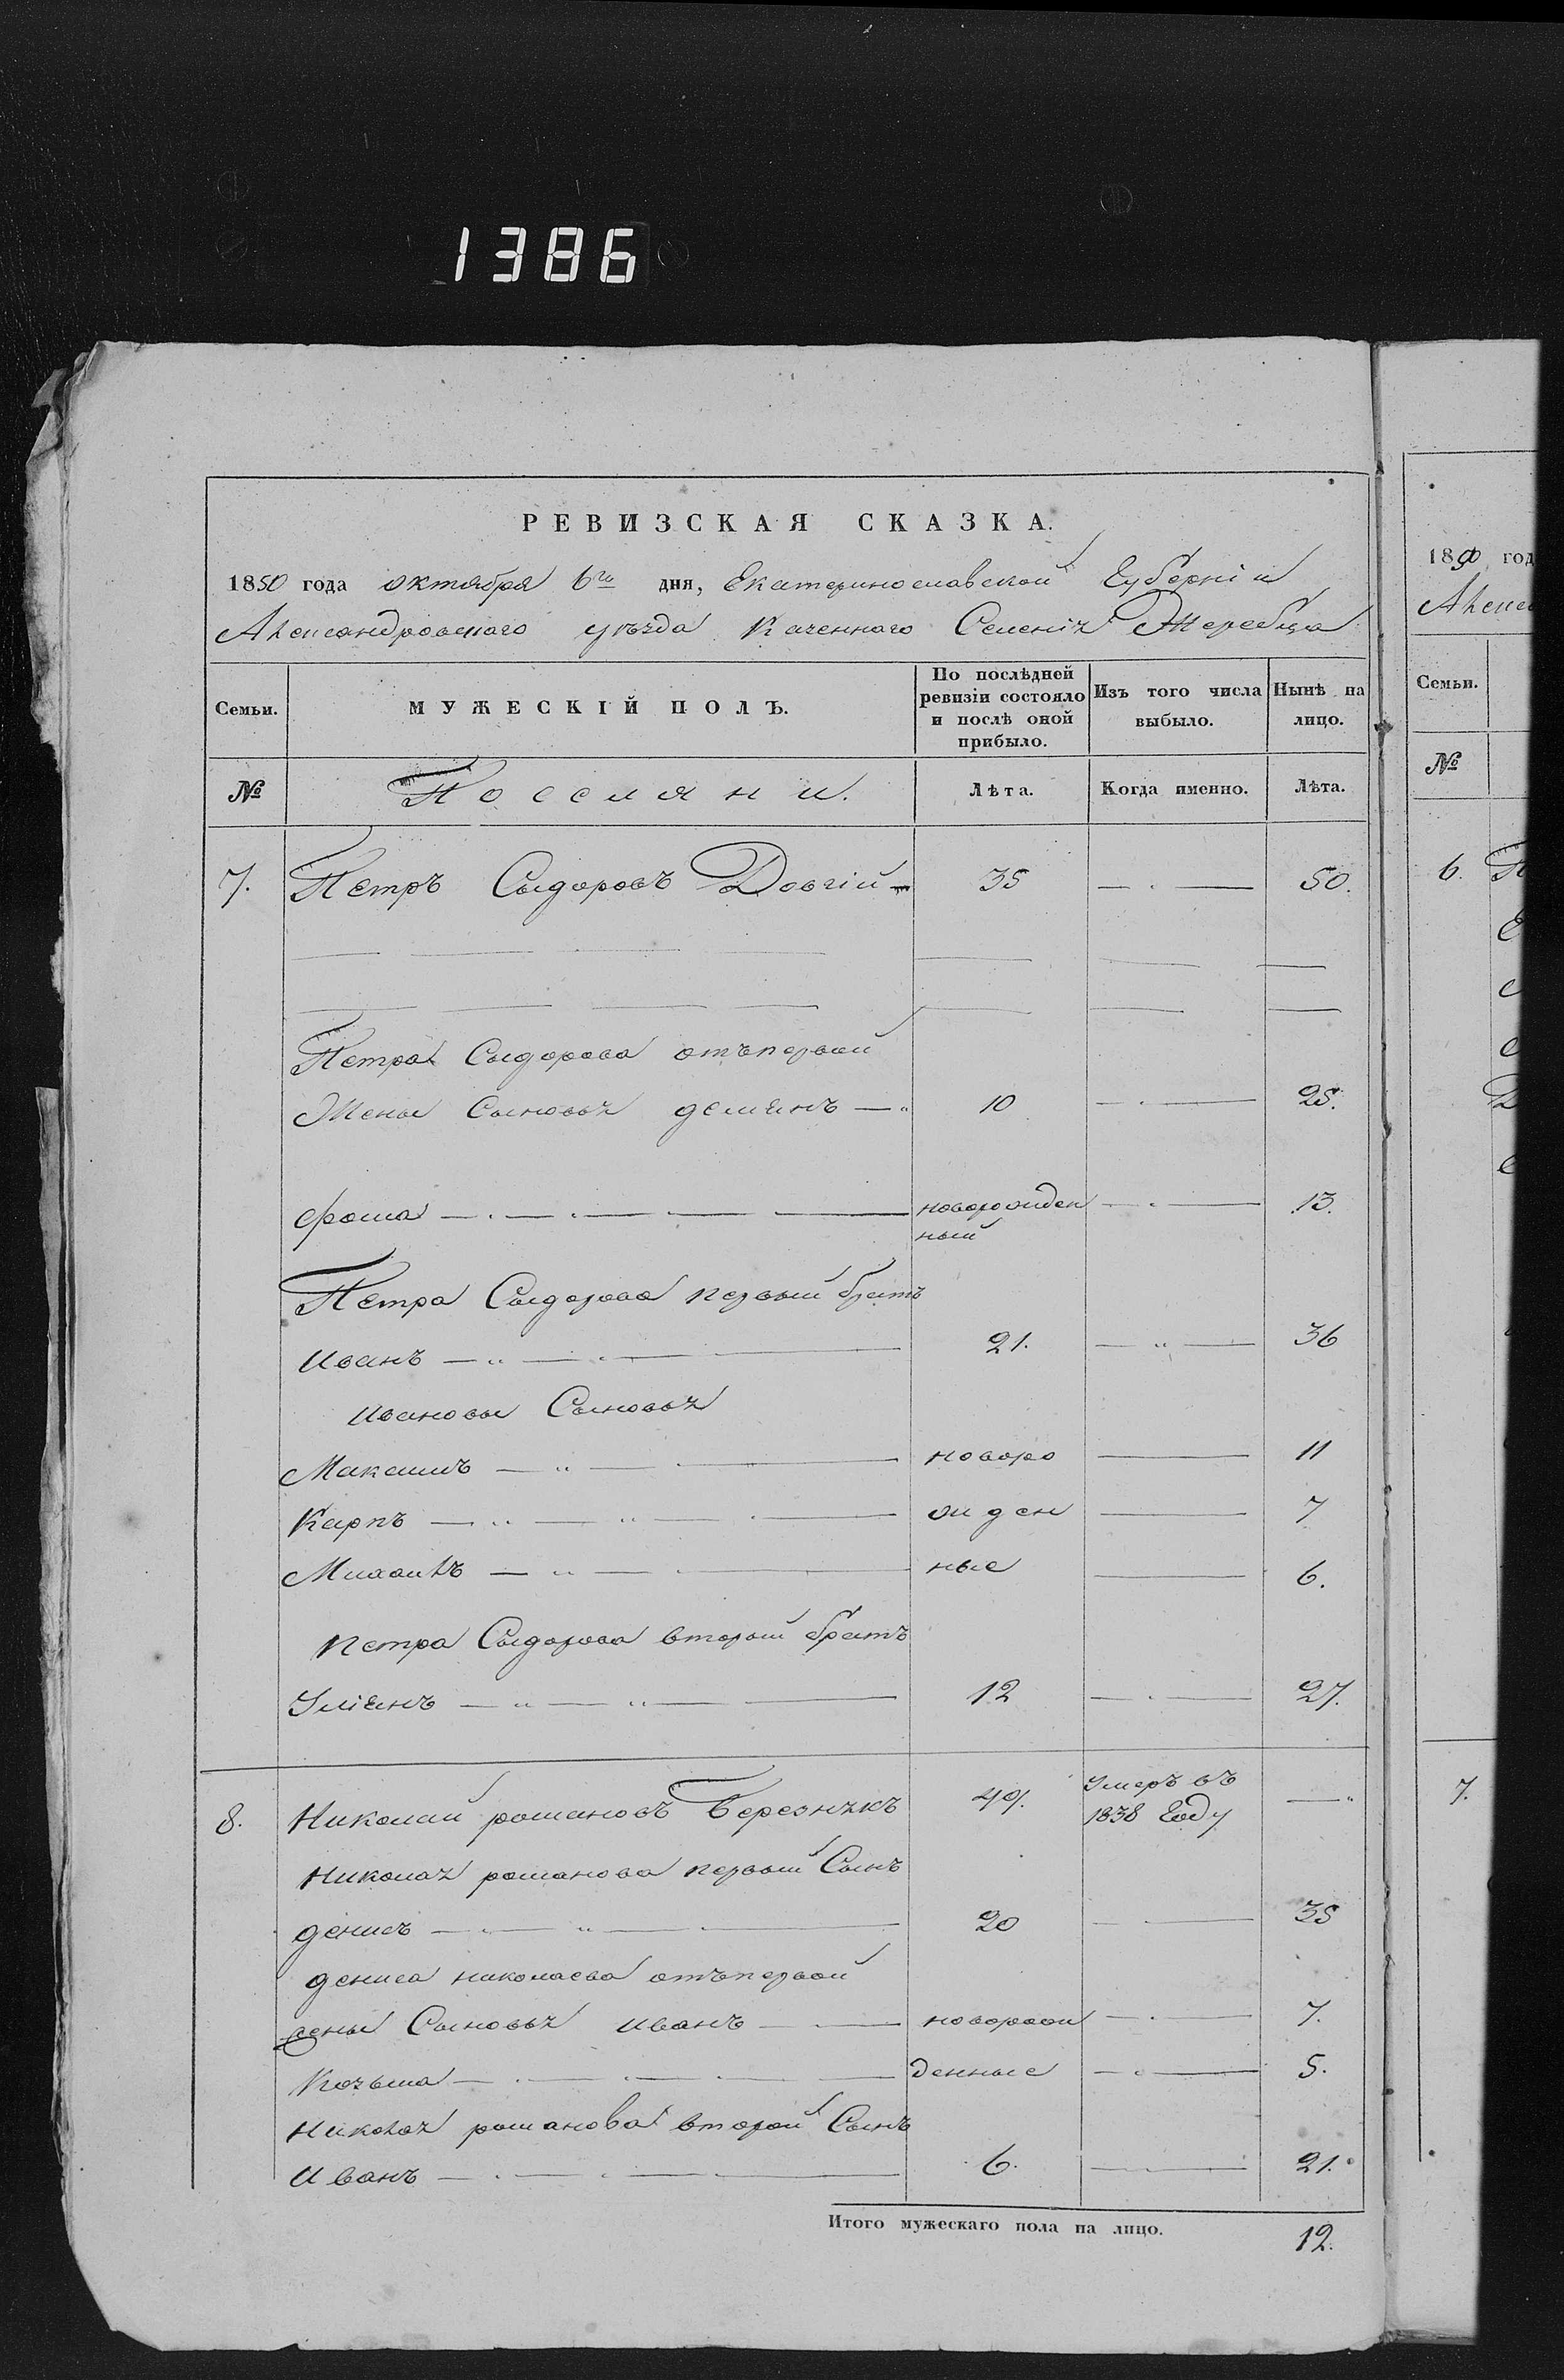 1386
РЕВИЗСКАЯ СКАЗКА.
1850 года октября 6го дня, Екатеринославской Губерніи
Александровскаго уѣзда Казеннаго Селенія Жеребца
Семьи. МУЖЕСКІЙ ПОЛЪ. По послѣдней ревизіи состояло и послѣ оной прибыло. Изъ того числа выбыло. Нынѣ на лицо.
№ Поселяни. Лѣта. Когда именно. Лѣта.
7. Петръ Сыдоровъ Довгій 35 50.
Петра Сыдорова отъпервой
Жены Сыновья демянъ 10 25.
фома новорожден 13.
ный
Петра Сыдорова первый братъ
Иванъ 21. 36
Ивановы Сыновья
Максимъ новоро 11
Карпъ жден 7
Михаилъ ные 6.
Петра Сыдорова вторый братъ
Уліянъ 12 27.
8. Николай романовъ Березнякъ 49. Умеръ въ
1838 Году
Николая романова первый Сынъ
денисъ 20 35
дениса николаева отъпервой
жены Сыновья Иванъ новорож 7.
Козьма денные 5.
Николая романова второй Сынъ
Иванъ 6. 21.
Итого мужескаго пола на лицо. 12.
1850 год
Алекса
Семьи.
№
6.
7.